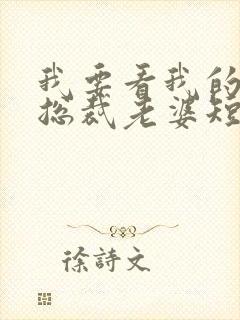 我要看我的
总裁老婆短
徐詩文